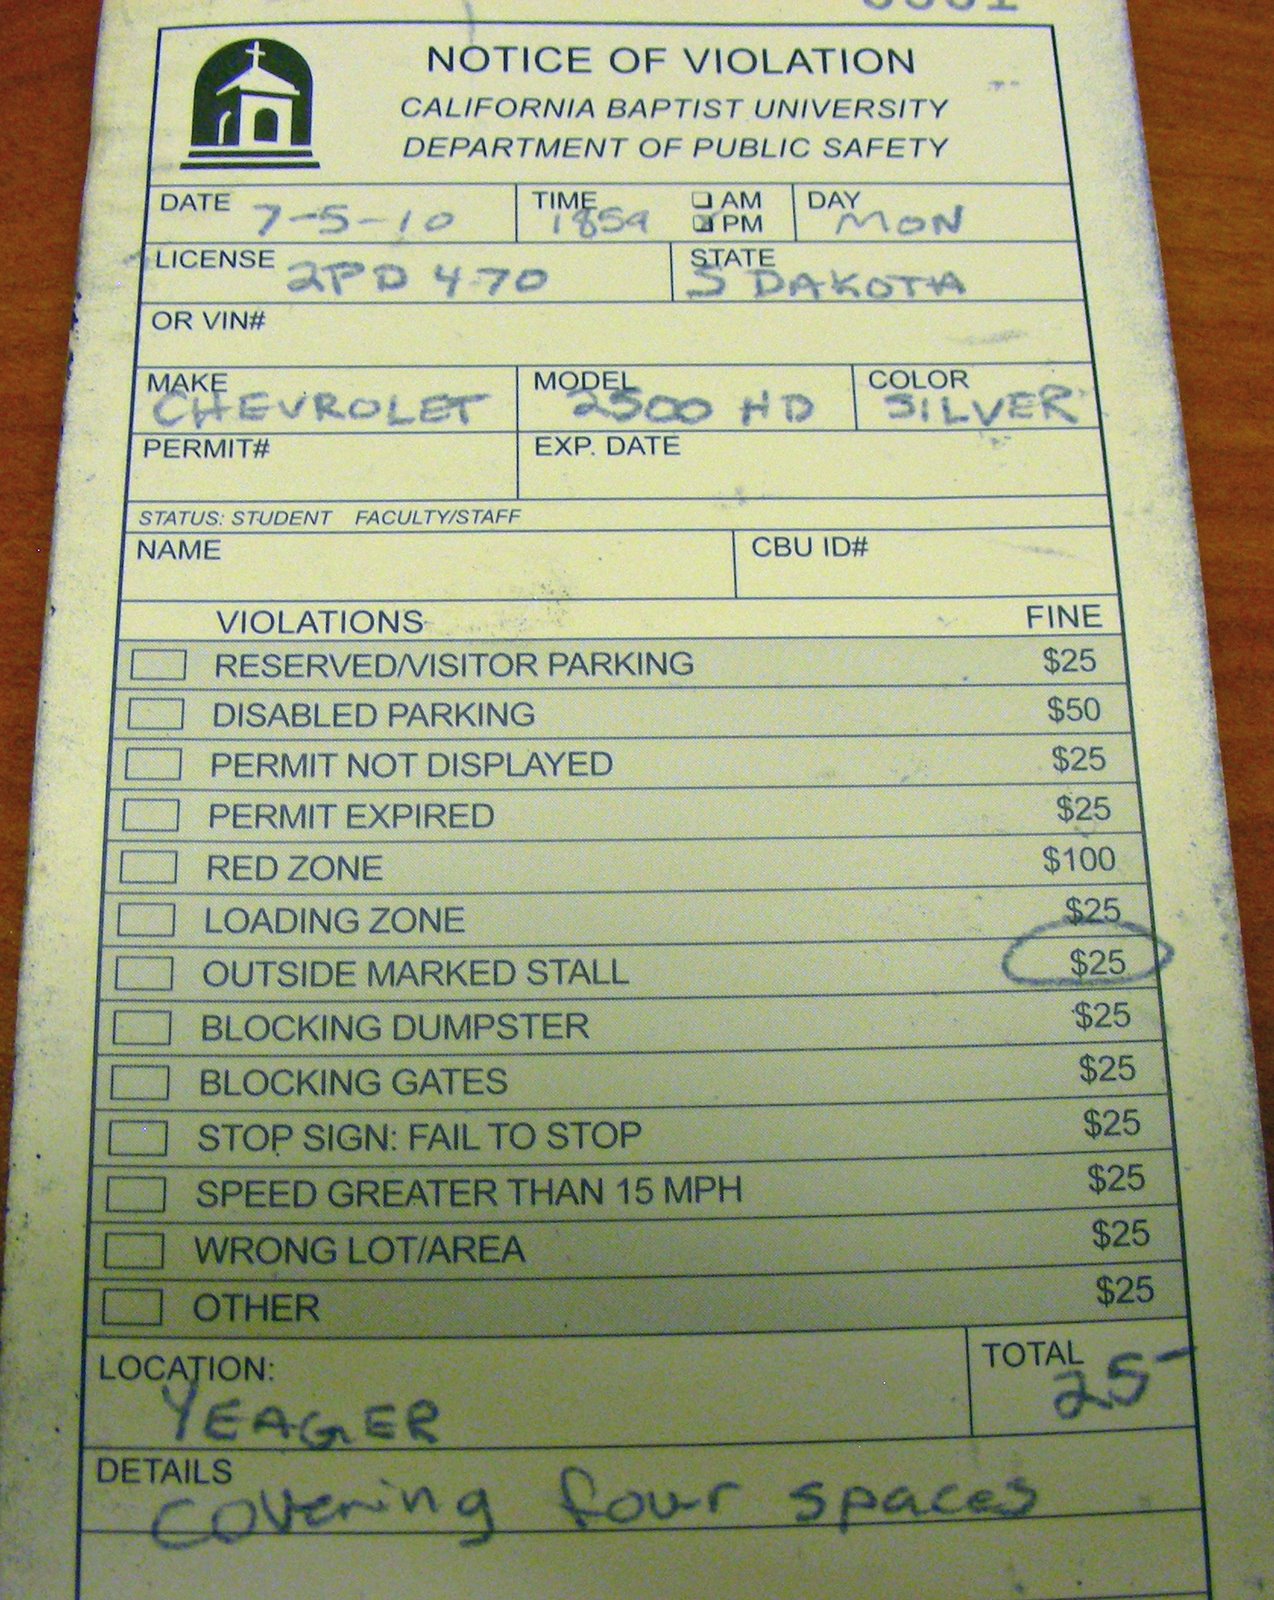 NOTICE OF VIOLATION
CALIFORNIA BAPTIST UNIVERSITY
DEPARTMENT OF PUBLIC SAFETY
DATE 7-5-10 TIME 1859 AM PM DAY MON
LICENSE 2PD 470 STATE S DAKOTA
OR VIN#
MAKE CHEVROLET MODEL 2500 HD COLOR SILVER
PERMIT# EXP. DATE
STATUS: STUDENT FACULTY/STAFF
NAME CBU ID#
VIOLATIONS FINE
RESERVED/VISITOR PARKING $25
DISABLED PARKING $50
PERMIT NOT DISPLAYED $25
PERMIT EXPIRED $25
RED ZONE $100
LOADING ZONE $25
OUTSIDE MARKED STALL $25
BLOCKING DUMPSTER $25
BLOCKING GATES $25
STOP SIGN: FAIL TO STOP $25
SPEED GREATER THAN 15 MPH $25
WRONG LOT/AREA $25
OTHER $25
LOCATION: YEAGER TOTAL 25-
DETAILS covering four spaces